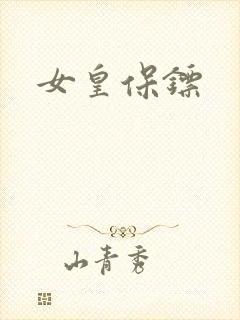 女皇保镖
山青秀